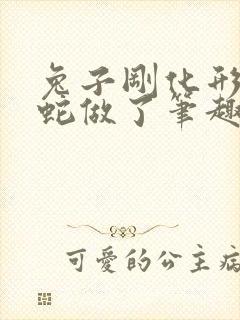 兔子剛化形
蛇做了筆趣
可愛的公主病